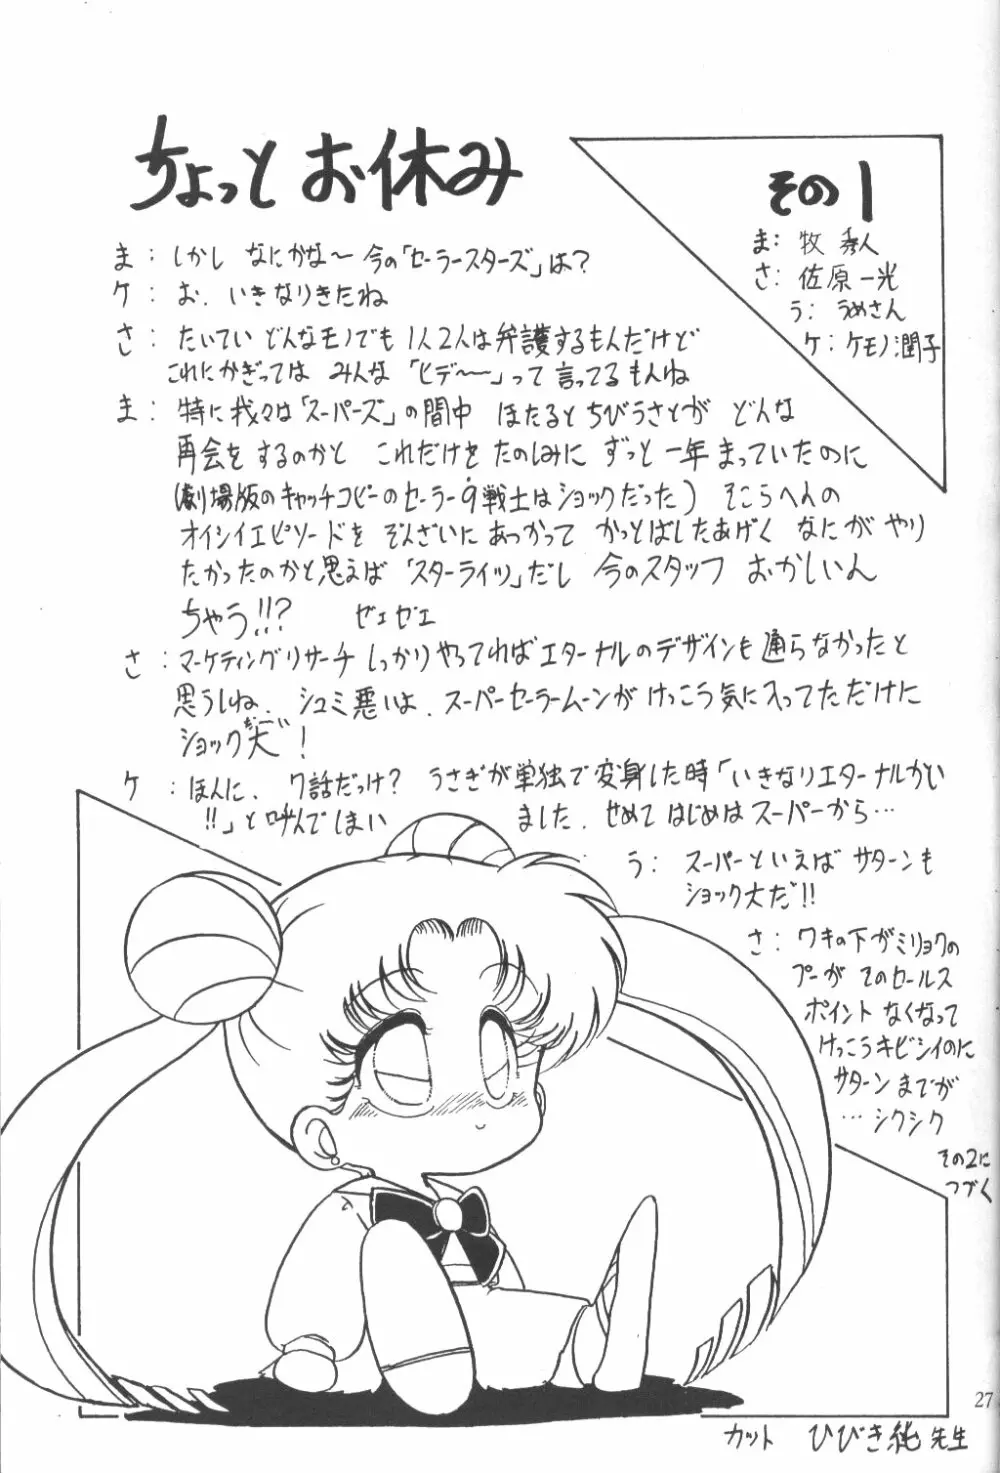 ちょっとお休み
その1
ま：牧 秀人
さ：佐原一光
う：うめさん
ケ：ケモノ潤子
ま：しかし なにかな〜 今の「セーラースターズ」は？
ケ：お、いきなりきたね
さ：たいてい どんなモノでも 1人2人は弁護するもんだけど
これにかぎっては みんな「ヒデ〜〜」って言ってるもんね
ま：特に我々は「スーパーズ」の間中 ほたるとちびうさとが どんな
再会をするのかと これだけをたのしみに ずっと一年まっていたのに
(劇場版のキャッチコピーのセーラー9戦士はショックだった) そこらへんの
オイシイエピソードを ぞんざいにあつかって かっとばしたあげく なにがやり
たかったのかと思えば「スターライツ」だし 今のスタッフ おかしいん
ちゃう!!? ゼェゼェ
さ：マーケティングリサーチしっかりやってればエターナルのデザインも通らなかったと
思うしね、シュミ悪いよ、スーパーセーラームーンがけっこう気に入ってただけに
ショック大！
ケ：ほんに、7話だっけ？ うさぎが単独で変身した時「いきなりエターナルかい
!!」と叫んでしまい ました、せめてはじめはスーパーから…
う：スーパーといえば サターンも
ショック大だ!!
さ：ワキの下がミリョクの
プーが そのセールス
ポイント なくなって
けっこうキビシイのに
サターンまでが
…シクシク
その2に
つづく
27
カット ひびき純先生